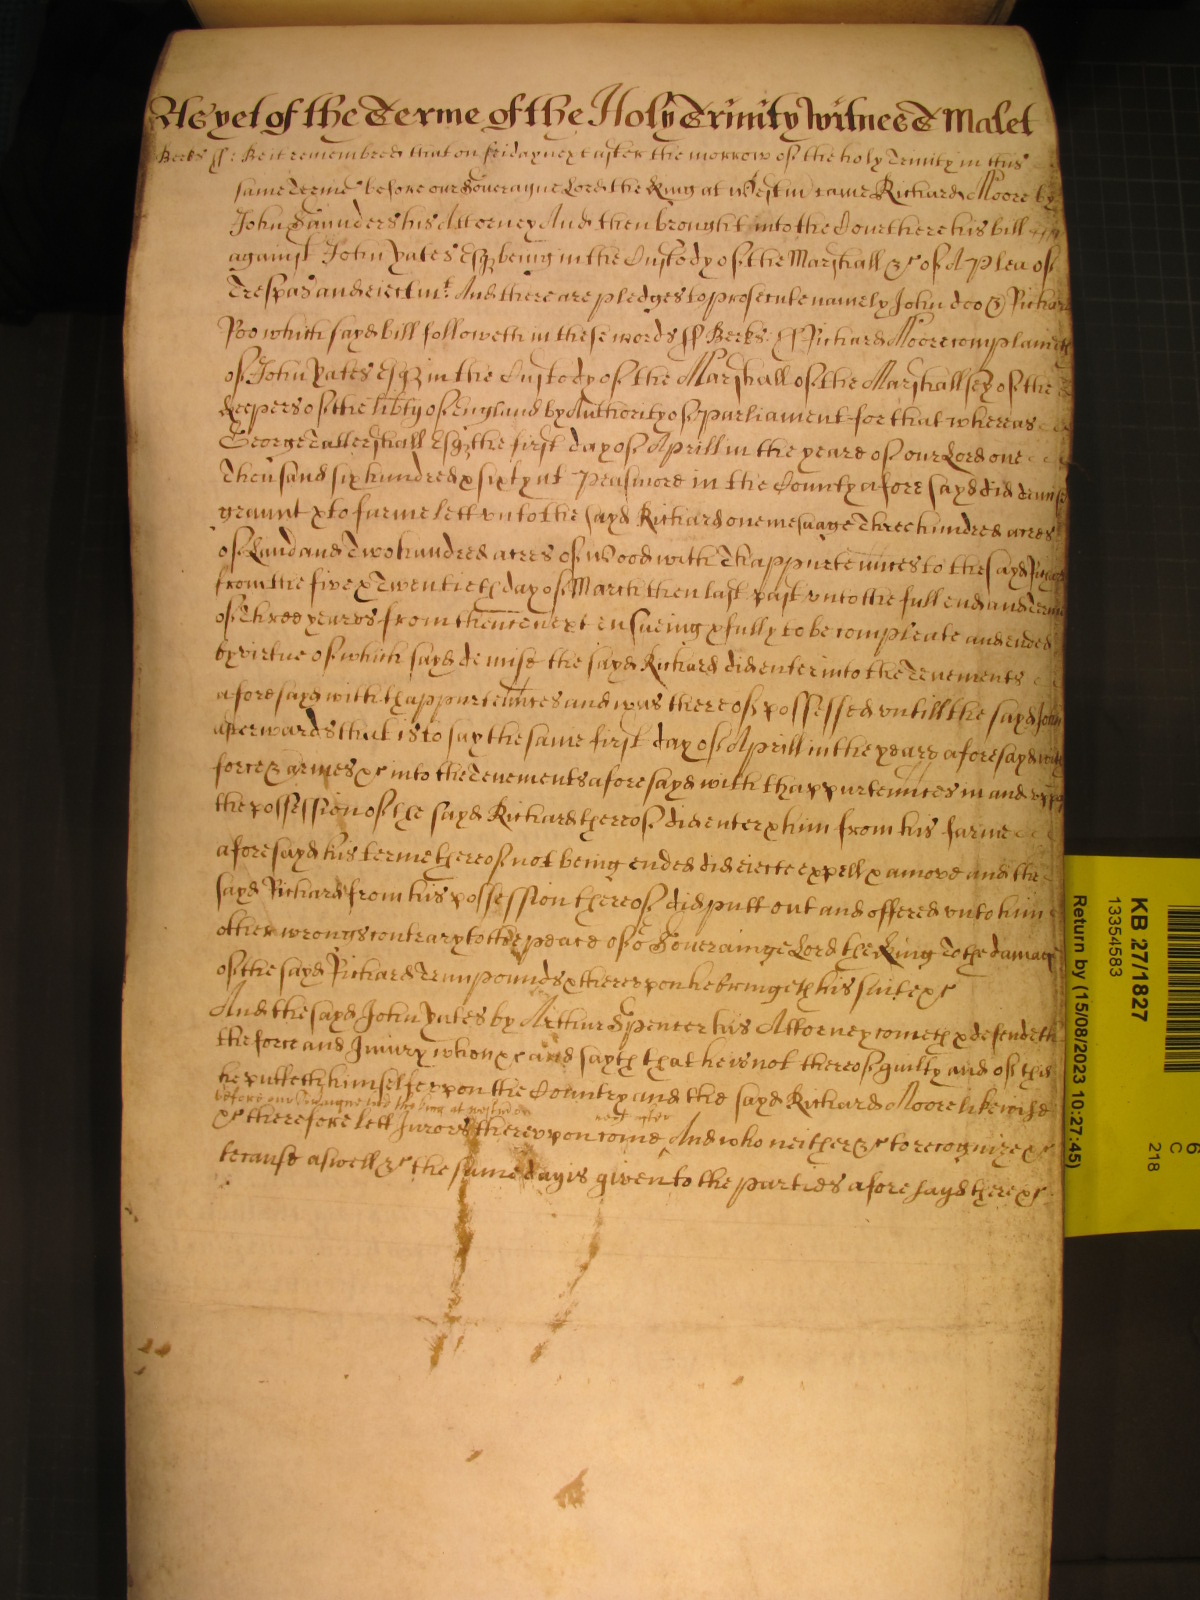 As yet of the Terme of the Holy Trinity Witness T Malet
Berks ss: Be it remembred that on friday next after the morrow of the holy Trinity in this
same Terme before our Soveraigne Lord the King at Westm came Richard Moore by
John Saunders his Attorney And then brought into the Court here his bill
against John Yates Esq being in the Custody of the Marshall &c of A plea of
Trespas and eiectmt. And there are pledges to prosecute namely John doo & Richard
Roo which sayd bill followeth in these words ss Berks. ss Richard Moore complaineth
of John Yates Esq in the Custody of the Marshall of the Marshallsey of the
keepers of the libty of England by Authority of parliament for that whereas
George Tattershall Esq the first day of Aprill in the yeare of our Lord one
Thousand six hundred & sixty at Peasmore in the County afore sayd did demise
graunt & to farme lett unto the sayd Richard one mesuage Three hundred acres
of Land and Two hundred acres of Wood with Thappurtennces to the sayd Richard
from the five & Twentieth day of March then last past unto the full end and Terme
of three yeares from thence next ensueing & fully to be compleate and ended
by virtue of which sayd demise the sayd Richard did enter into the Tenements
aforesayd with thappurtennces and was thereof possessed untill the sayd John
afterwards that is to say the same first day of Aprill in the yeare aforesayd with
force & armes &c into the Tenements aforesayd with thappurtennces in and uppon
the possession of the sayd Richard thereof did enter & him from his farme
aforesayd his terme thereof not being ended did eiecte expell & amove and the
sayd Richard from his possession thereof did putt out and offered unto him
other wrongs contrary to the peace of or Soveraigne Lord the King To the damage
of the sayd Richard Tenn pounds & thereuppon he bringeth his suite &c
And the sayd John Yates by Arthur Spencer his Attorney cometh & defendeth
the force and Iniury when &c and sayth that he is not thereof guilty and of this
he putteth himselfe uppon the Country and the sayd Richard Moore likewise
before our Soveraigne lord the king at westm on next after
&c therefore lett Jurors thereuppon come And who neither &c to recognize &c
because aswell &c the same day is given to the parties aforesayd there &c
KB 27/1827
13354583
Return by (15/08/2023 10:27:45)
6
C
218